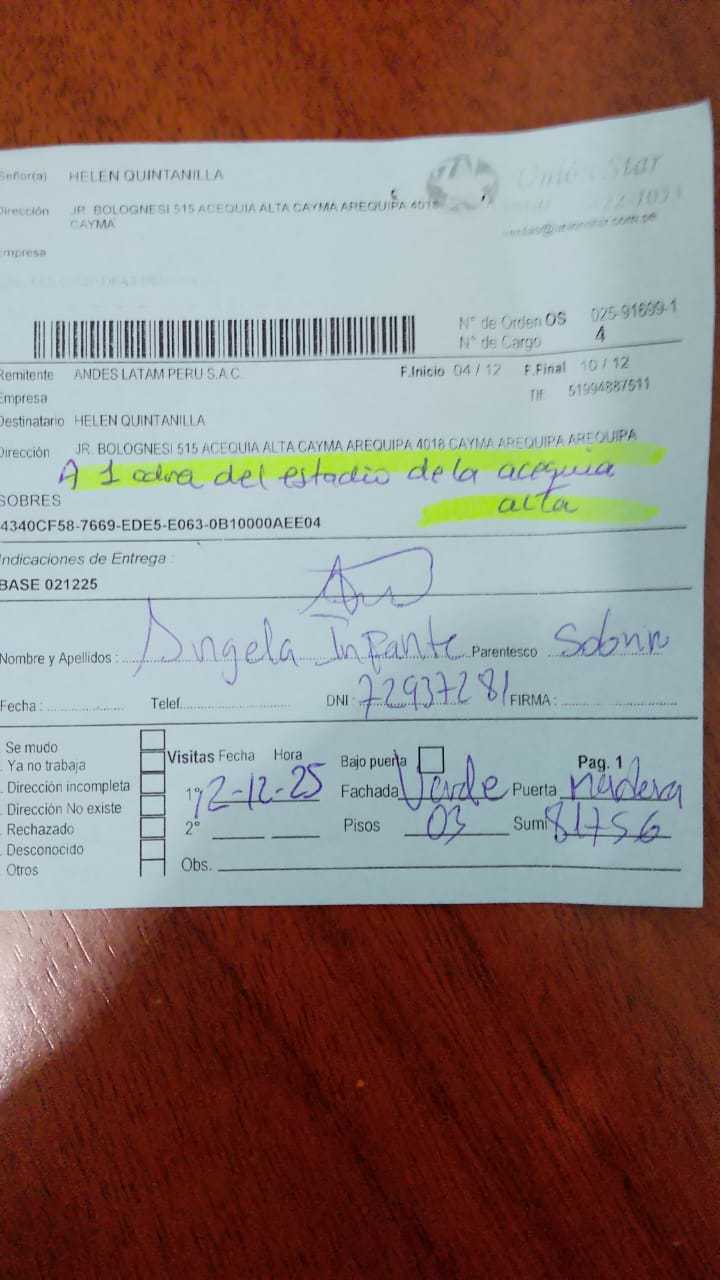 Señor(a) HELEN QUINTANILLA
Dirección JR. BOLOGNESI 515 ACEQUIA ALTA CAYMA AREQUIPA 4018
CAYMA
Empresa
Unión Star
ventas@unionstar.com.pe
N° de Orden OS 025-91699-1
N° de Cargo 4
Remitente ANDES LATAM PERU S.A.C. F.Inicio 04 / 12 F.Final 10 / 12
Empresa Tlf: 51994887511
Destinatario HELEN QUINTANILLA
Dirección JR. BOLOGNESI 515 ACEQUIA ALTA CAYMA AREQUIPA 4018 CAYMA AREQUIPA AREQUIPA
A 1 cdra del estadio de la acequia
alta
SOBRES
4340CF58-7669-EDE5-E063-0B10000AEE04
Indicaciones de Entrega :
BASE 021225
Nombre y Apellidos : Angela Infante Parentesco Sobrin
Fecha : Telef. DNI : 72937281 FIRMA :
Se mudo
Ya no trabaja
Dirección incompleta
Dirección No existe
Rechazado
Desconocido
Otros
Visitas Fecha Hora Bajo puerta Pag. 1
1° 12-12-25 Fachada Verde Puerta madera
2° Pisos 03 Sumi 81756
Obs.